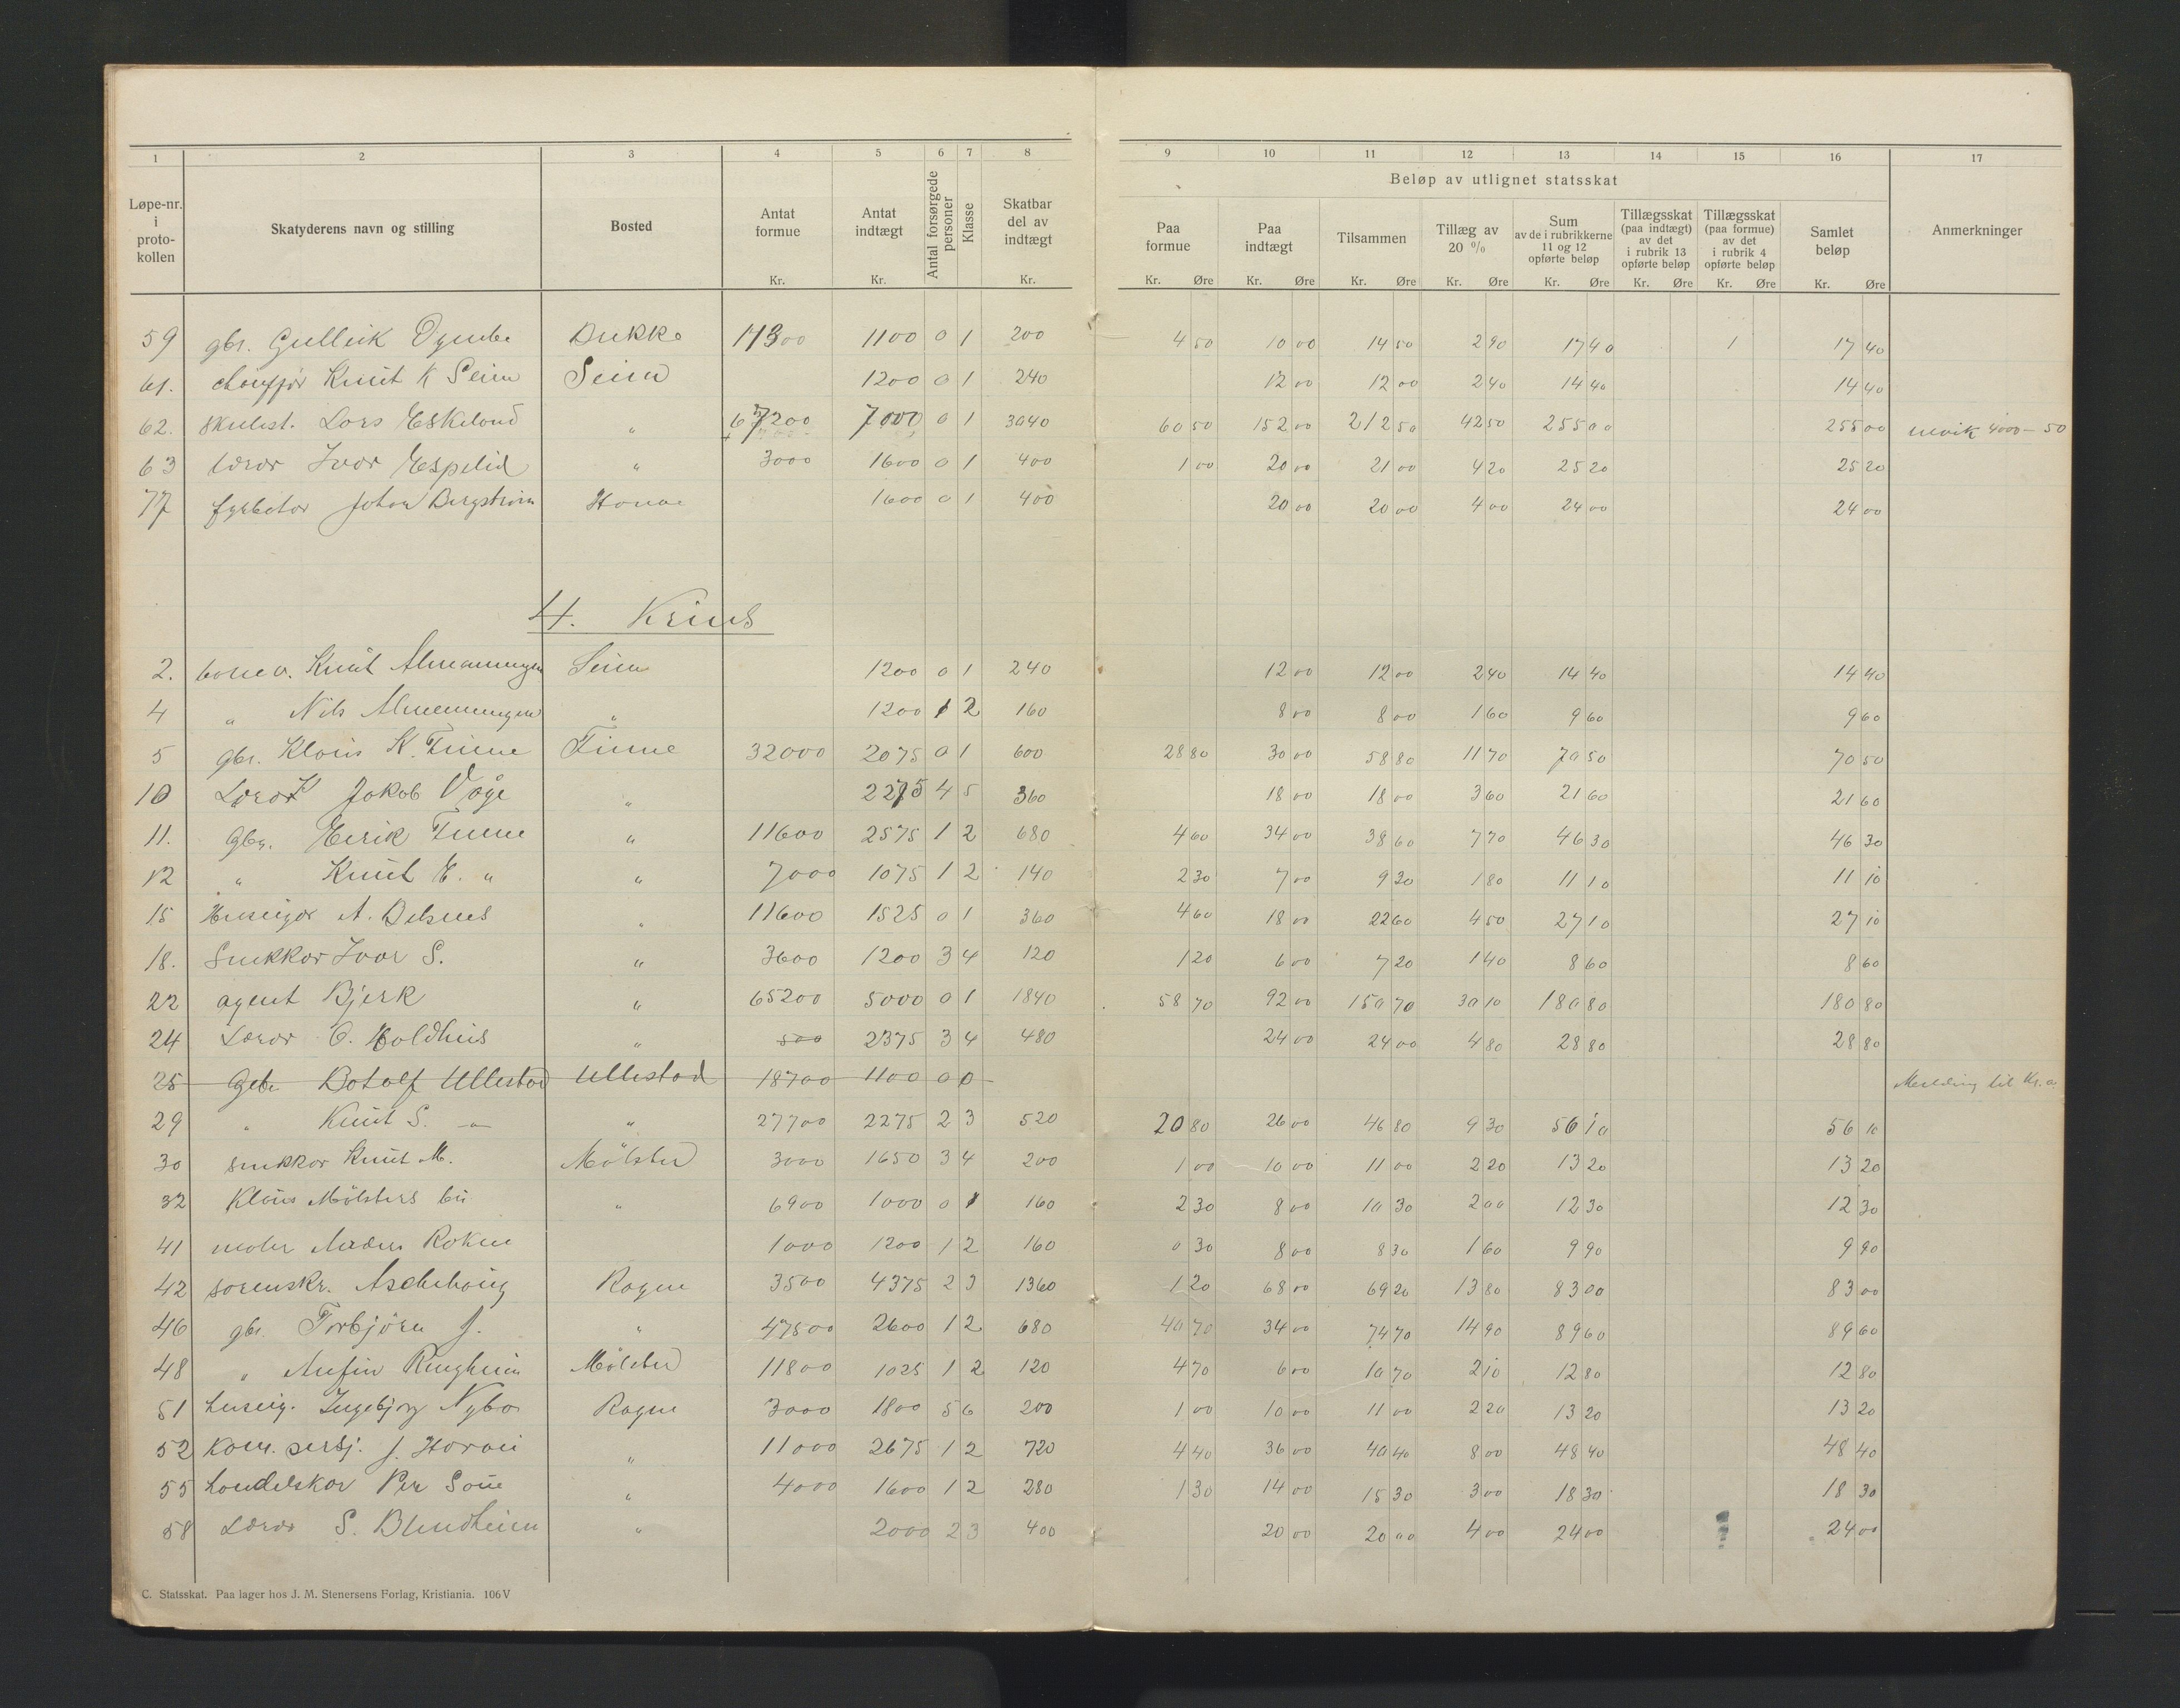 1 2 3 4 5 6 7 8 9 10 11 12 13 14 15 16 17
Beløp av utlignet statsskat
Løpe-nr. i proto-kollen | Skatyderens navn og stilling | Bosted | Antat formue Kr. | Antat indtægt Kr. | Antal forsørgede personer | Klasse | Skatbar del av indtægt Kr. | Paa formue Kr. Øre | Paa indtægt Kr. Øre | Tilsammen Kr. Øre | Tillæg av 20 % Kr. Øre | Sum av de i rubrikkerne 11 og 12 opførte beløp Kr. Øre | Tillægsskat (paa indtægt) av det i rubrik 13 opførte beløp Kr. Øre | Tillægsskat (paa formue) av det i rubrik 4 opførte beløp Kr. Øre | Samlet beløp Kr. Øre | Anmerkninger
59 gbr. Gullik Dukke 1100 0 1 200 4 50 10 00 14 50 2 90 17 40 1 17 40
61. Knut K Seim Seim 1200 0 1 240 12 00 12 00 2 40 14 40 14 40
62. skulest. Lars Eskeland " 7000 0 1 3040 60 50 152 00 212 50 42 50 255 00 255 00 4000 — 50
63 lærar Ivar Espelid " 3000 1600 0 1 400 1 00 20 00 21 00 4 20 25 20 25 20
77 fyrbøtar Johan Bergstrøm 1600 0 1 400 20 00 20 00 4 00 24 00 24 00
4. Krins
2. Knut Almenningen Seim 1200 0 1 240 12 00 12 00 2 40 14 40 14 40
4 " Nils Almenningen " 1200 1 2 160 8 00 8 00 1 60 9 60 9 60
5 gbr. Klaus K. Finne Finne 32000 2075 0 1 600 28 80 30 00 58 80 11 70 70 50 70 50
10 Lærar Jakob Våge " 2275 4 5 360 18 00 18 00 3 60 21 60 21 60
11. gbr. Eirik Finne " 11600 2575 1 2 680 4 60 34 00 38 60 7 70 46 30 46 30
12 " Knut E. " " 7000 1075 1 2 140 2 30 7 00 9 30 1 80 11 10 11 10
15 Huseigar A. " 11600 1525 0 1 360 4 60 18 00 22 60 4 50 27 10 27 10
18. Snikkar Ivar S. " 3600 1200 3 4 120 1 20 6 00 7 20 1 40 8 60 8 60
22 agent Bjerk " 65200 5000 0 1 1840 58 70 92 00 150 70 30 10 180 80 180 80
24 Lærar O. Holdhus " 500 2375 3 4 480 24 00 24 00 4 80 28 80 28 80
25 Gbr Botolf Ullestad Ullestad 18700 1100 0 0 Melding til Kr.a
29 " Knut S. — " 27700 2275 2 3 520 20 80 26 00 46 80 9 30 56 10 56 10
30 snikkar Knut M. Mölster 3000 1650 3 4 200 1 00 10 00 11 00 2 20 13 20 13 20
32 Klaus Mölsters bu " 6900 1000 0 1 160 2 30 8 00 10 30 2 00 12 30 12 30
41 malar Anders Rokne 1000 1200 1 2 160 0 30 8 00 8 30 1 60 9 90 9 90
42 sorenskr. Aschehoug Rogne 3500 4375 2 3 1360 1 20 68 00 69 20 13 80 83 00 83 00
46 gbr. Torbjörn J. " 47500 2600 1 2 680 40 70 34 00 74 70 14 90 89 60 89 60
48 " Anfin Ringheim Mölster 11800 1025 1 2 120 4 70 6 00 10 70 2 10 12 80 12 80
51 huseig. Ingebjörg Nybø Rogne 3000 1800 5 6 200 1 00 10 00 11 00 2 20 13 20 13 20
52 Kom. J. " 11000 2675 1 2 720 4 40 36 00 40 40 8 00 48 40 48 40
55 handelskar Per Soue " 4000 1600 1 2 280 1 30 14 00 15 30 3 00 18 30 18 30
58 Lærar S. Blindheim " 2000 2 3 400 20 00 20 00 4 00 24 00 24 00
C. Statsskat. Paa lager hos J. M. Stenersens Forlag, Kristiania. 106 V